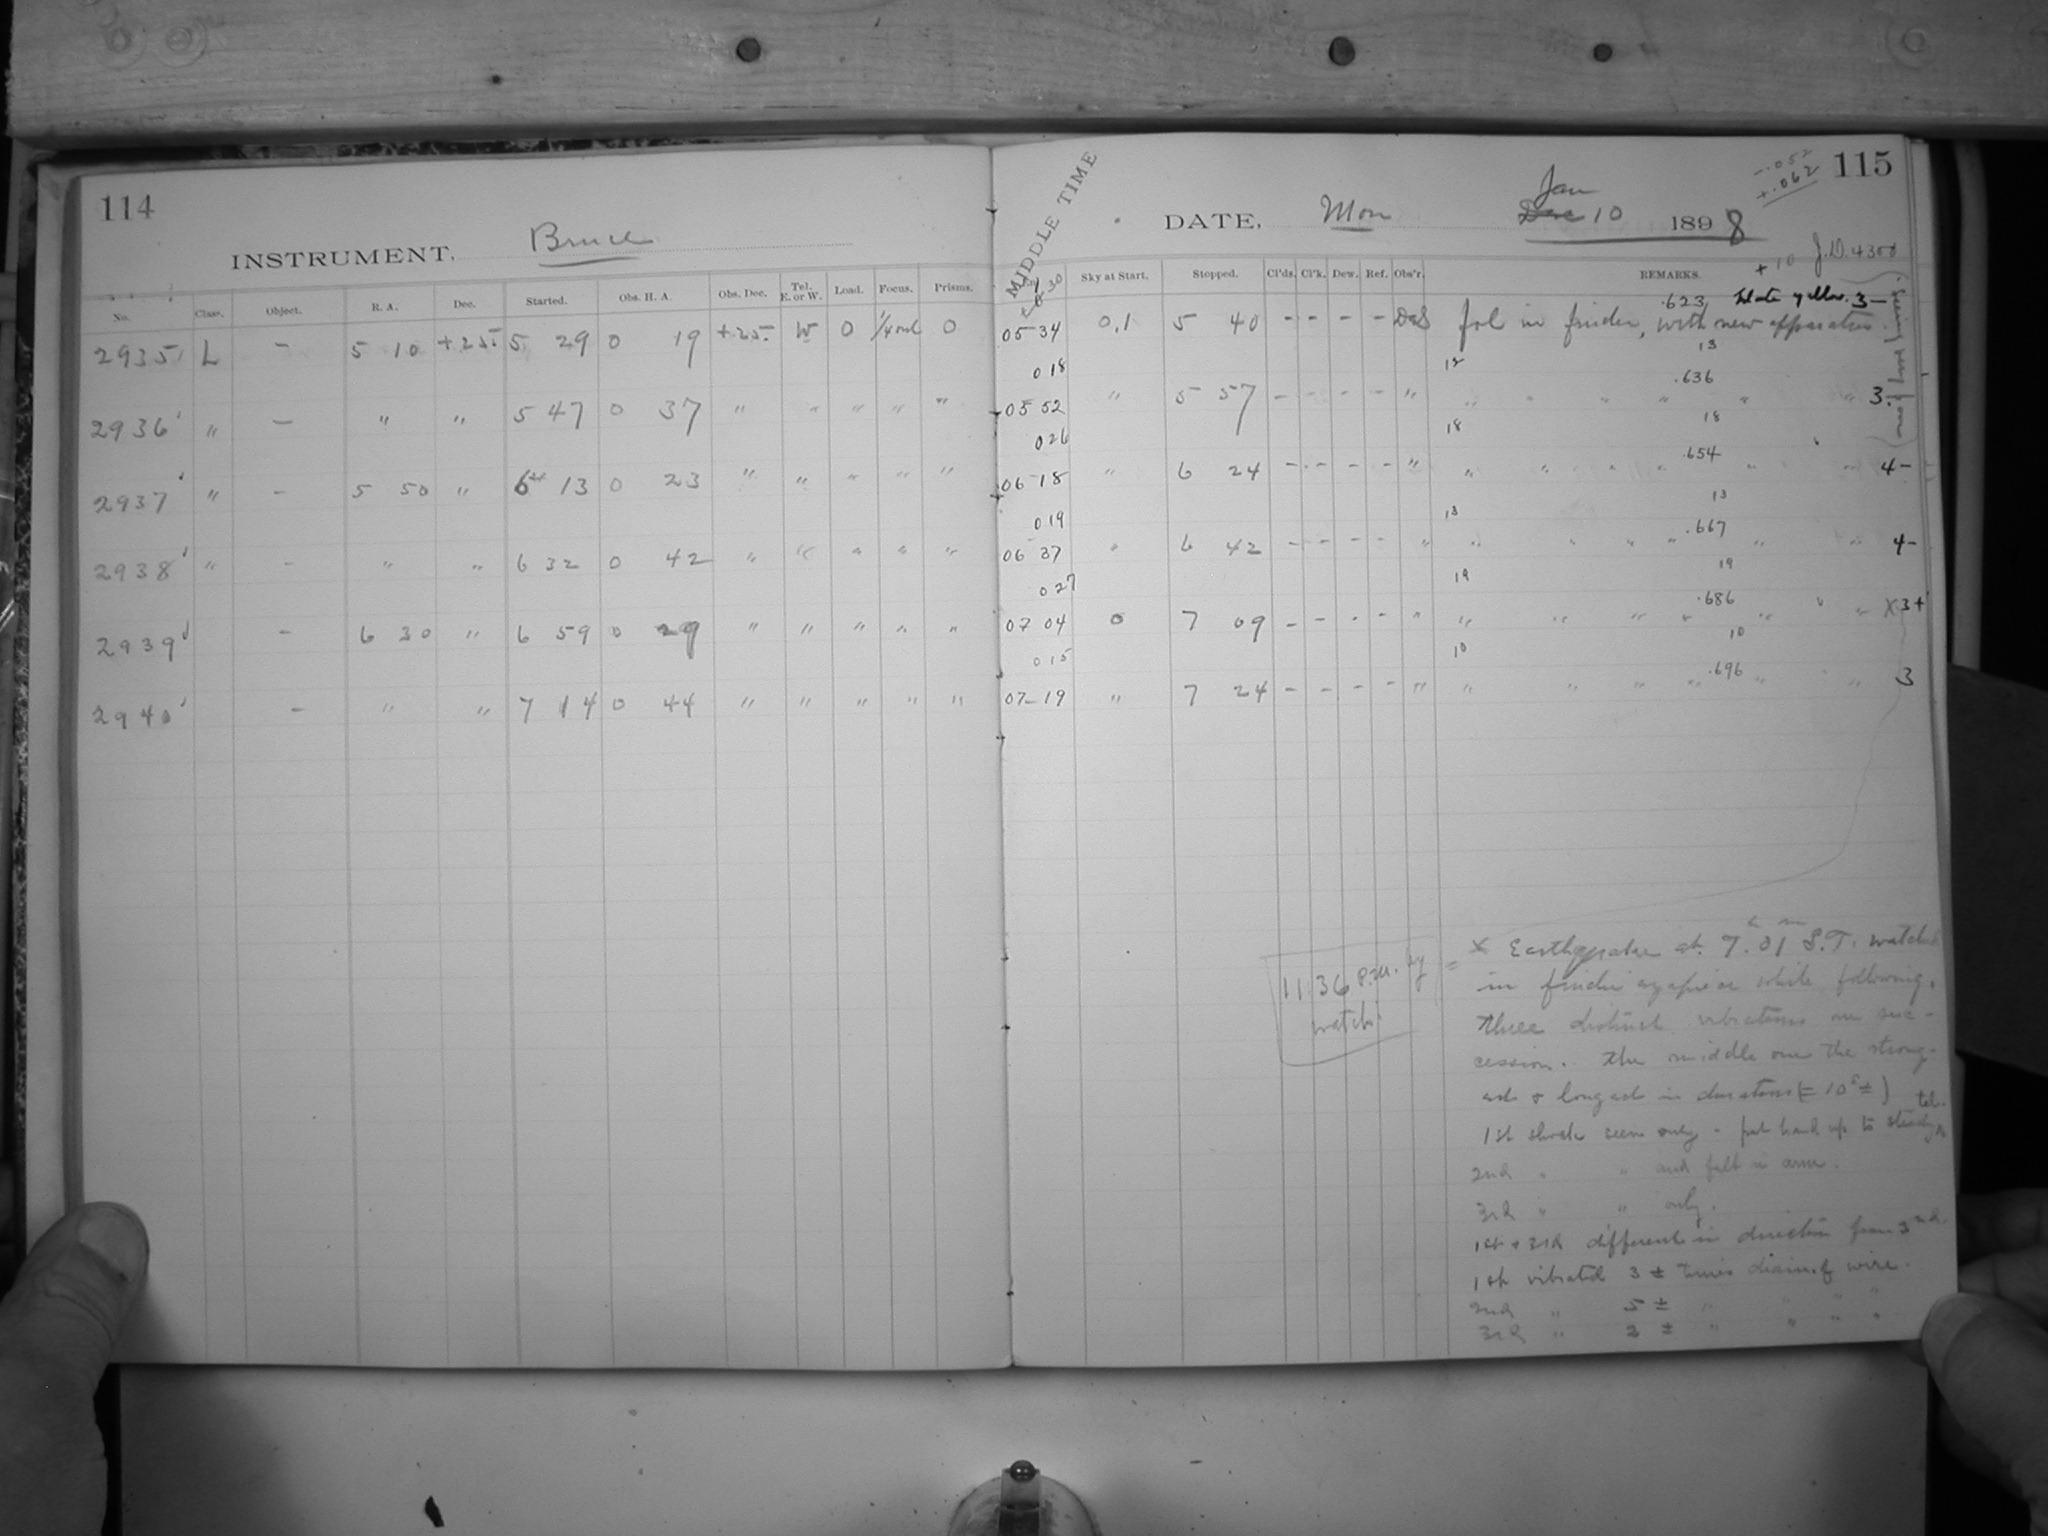 114
INSTRUMENT. Bruce
No. Class. Object. R. A. Dec. Started. Obs. H. A. Obs. Dec. Tel. E. or W. Load. Focus. Prisms.
2935 L — 5 10 +25 5 29 0 19 +25 W 0 0
2936 " — " " 5 47 0 37 " " " " "
2937 " - 5 50 " 6 13 0 23 " " " " "
2938 " - " " 6 32 0 42 " " " " "
2939 - 6 30 " 6 59 0 29 " " " " "
2940 - " " 7 14 0 44 " " " " "
MIDDLE TIME
DATE, Mon Jan 10 1898
-.052
+.062
115
+10 J.D. 4300
Sky at Start. Stopped. Cl'ds. Cl'k. Dew. Ref. Obs'r. REMARKS.
.623 Plate yellow. 3-
05 34 0,1 5 40 - - - - fol in finder, with new apparatus.
018 12 13
.636
05 52 " 5 57 - - - - " " " " " " " 3-
026 18 18
.654
06 18 " 6 24 - - - - " " " " " " " 4-
019 13 13
.667
06 37 " 6 42 - - - - " " " " " " " 4-
027 19 19
.686
07 04 0 7 09 - - - - " " " " " " " X 3+
015 10 10
.696
07 19 " 7 24 - - - - " " " " " " " 3
Seeing very poor
11.36 P.M. by
watch.
= X Earthquake at 7h.01m S.T. watched
in finder eyepiece while following.
Three distinct vibrations in suc-
cession. The middle one the strong-
est & longest in duration (= 10s ±)
1st shock seen only - put hand up to steady tel.
2nd " " and felt in arm.
3rd " " only.
1st & 3rd different in direction from 2nd.
1st vibrated 3 ± times diam. of wire.
2nd " 5 ± " " " "
3rd " 2 ± " " " "